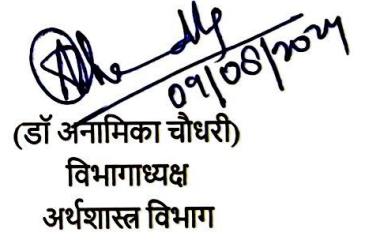 09/08/2024
(डॉ अनामिका चौधरी)
विभागाध्यक्ष
अर्थशास्त्र विभाग